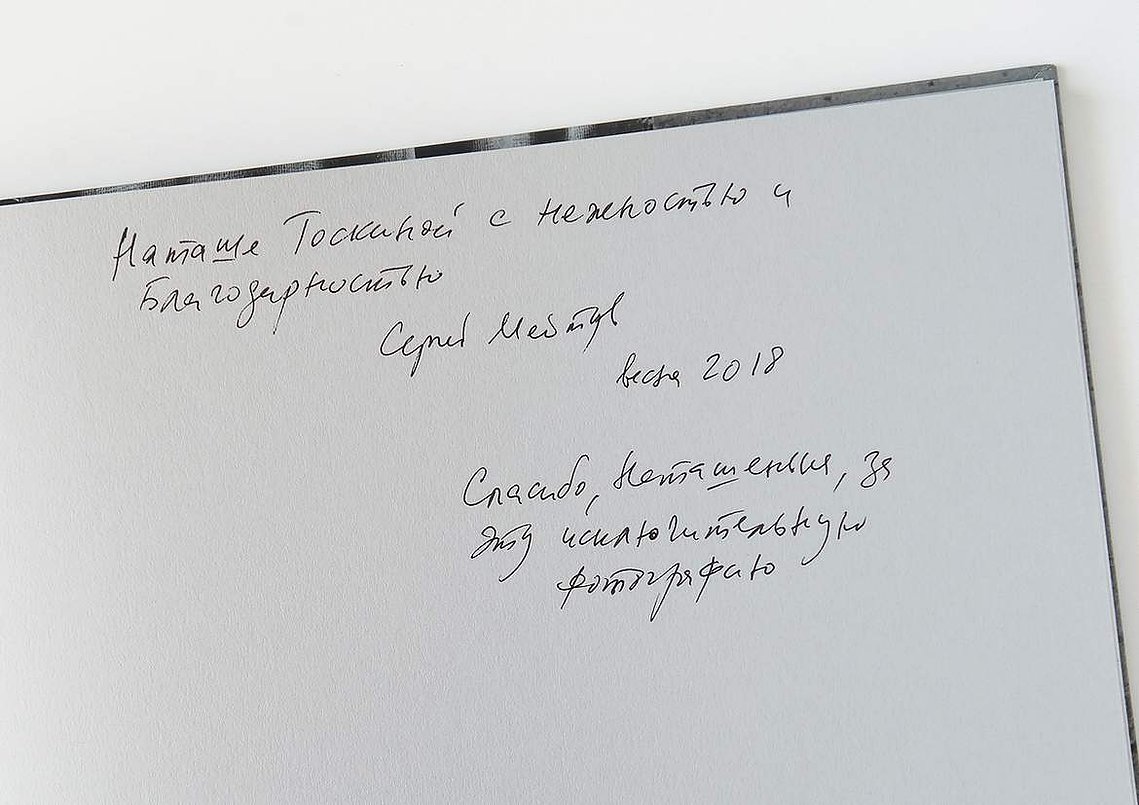 Наташе Тоскиной с нежностью и
Благодарностью
Сергей
весна 2018
Спасибо, Наташенька, за
эту исключительную
фотографию